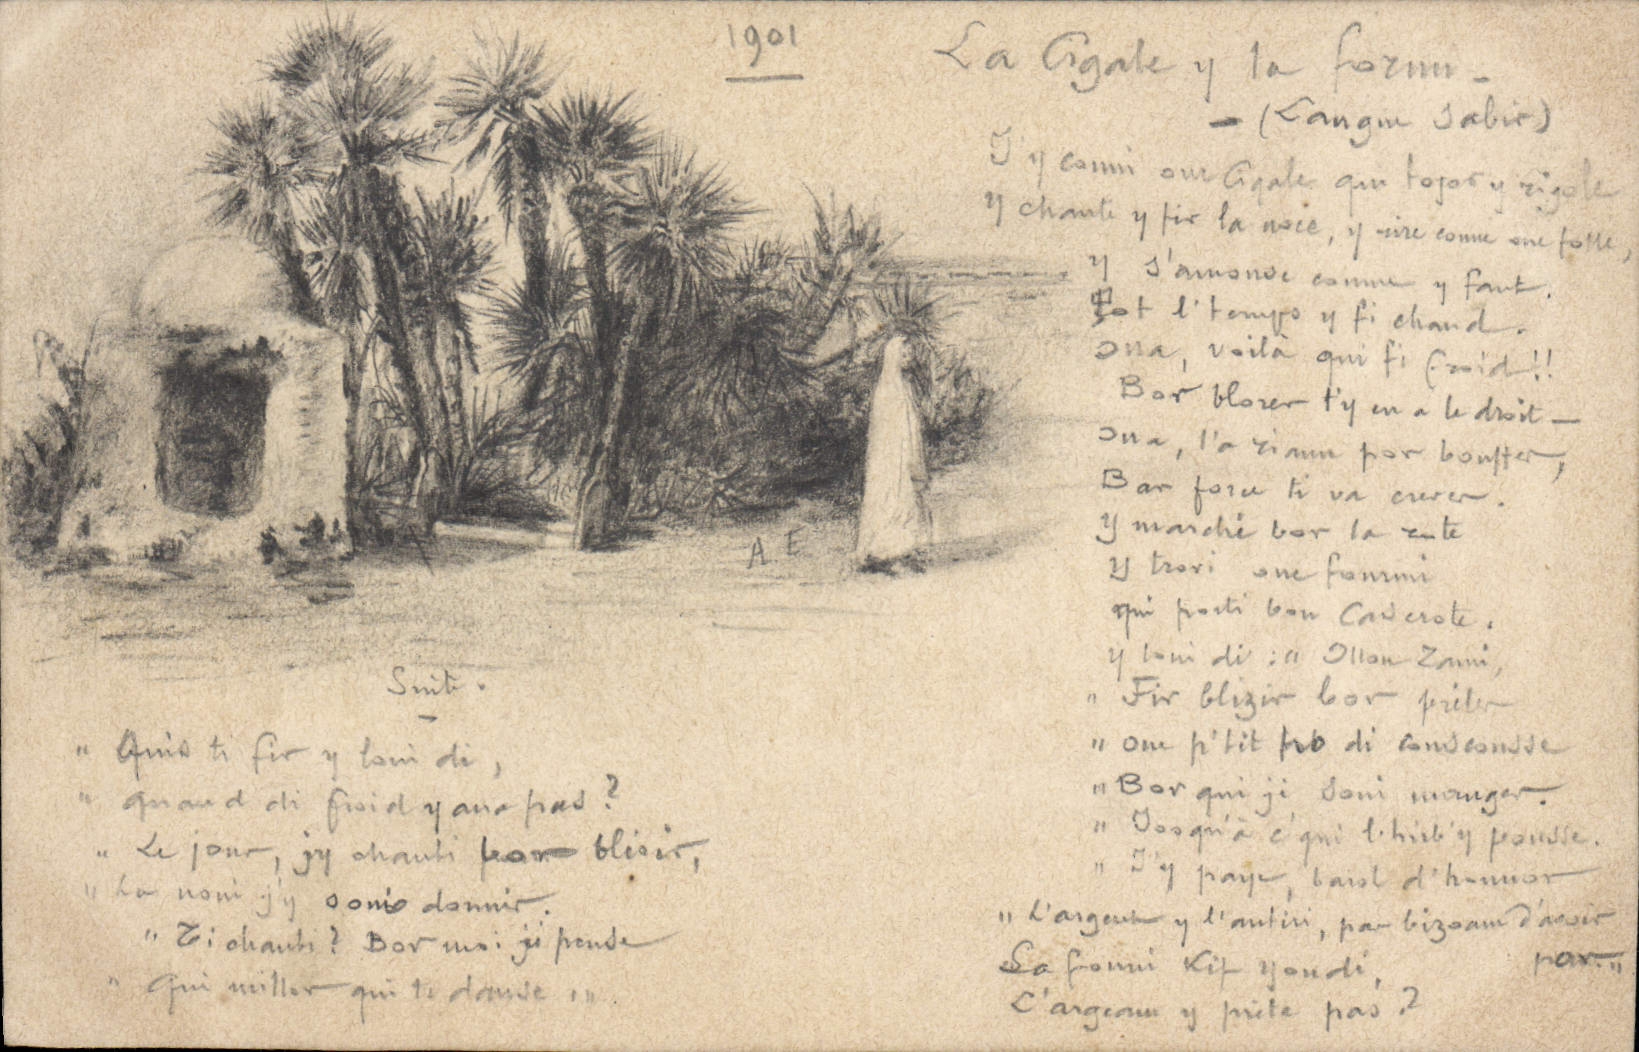 1901
La Cigale y la formi -
- (Langue Sabir)
J'y conni one Cigale que tojor y rigole
Y chante y fir la noce, y rire comme one folle,
Y s'amouse comme y faut.
Tot l'temps y fi chaud.
Ma, voilà qui fi froid!!
Bor blorer t'y en a le droit -
Ma, l'a rianne por bouffer,
Bar force ti va crever.
Y marchi bor la rote
Y trovi one fourmi
qui porti bon Casscrote.
Y loui di : " Mon Zami,
" Fir blizir bor prêter
" one p'tit po di couscousse
" Bor qui ji soui manger.
" Josqu'à c'qui l'hirb'y pousse.
" J'y paye, barol d'honnor
" L'argent y l'antiri, pas bizoan d'avoir
par. "
La formi kif youdi,
L'argeann y prite pas?
Suite.
" Quis ti fir y loui di,
" quand di froid y ana pas?
" Le jour, j'y chanti bor blisir,
" La noui j'y soui dormir.
" Ti chanti? Bor moi ji pense
" Qui millor qui ti danse. "
A E